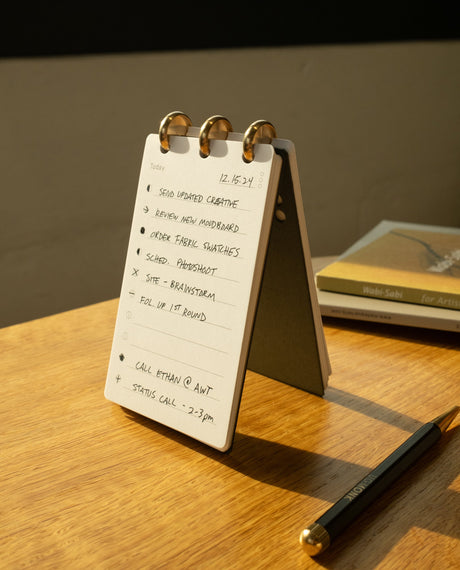 Today
12.15.24
SEND UPDATED CREATIVE
REVIEW NEW MOODBOARD
ORDER FABRIC SWATCHES
SCHED. PHOTOSHOOT
SITE - BRAINSTORM
FOL. UP 1ST ROUND
CALL ETHAN @ AWT
STATUS CALL - 2-3pm
Wabi-Sabi for Artis